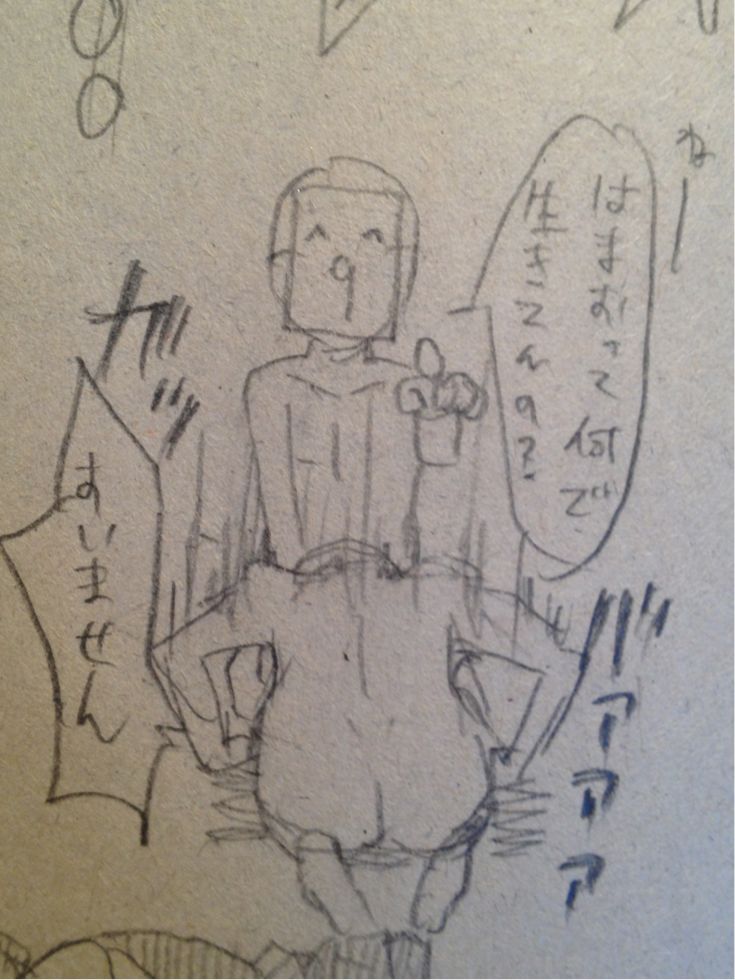 ねー
はまおって何で
生きてんの?
ガッ
すいません
バァァァ